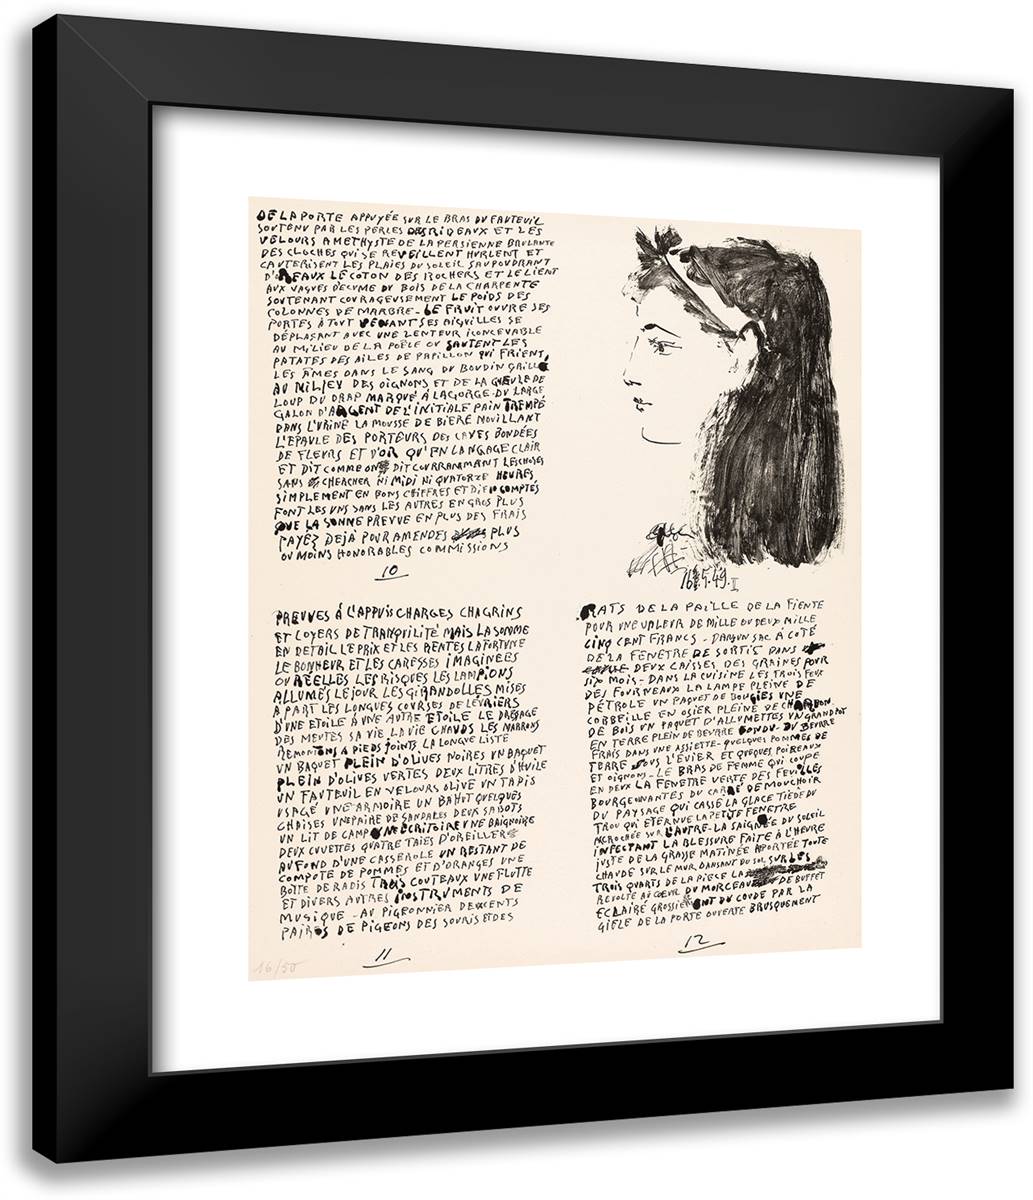 DE LA PORTE APPUYÉE SUR LE BRAS DU FAUTEUIL
SOUTENU PAR LES PERLES DES RIDEAUX ET LES
VELOURS AMETHYSTE DE LA PERSIENNE BRULANTE
DES CLOCHES QUI SE REVEILLENT HURLENT ET
CAUTERISENT LES PLAIES DU SOLEIL SAUPOUDRANT
D'OREAUX LE COTON DES ROCHERS ET LE LIENT
AUX VAGUES D'ECUME DU BOIS DE LA CHARPENTE
SOUTENANT COURAGEUSEMENT LE POIDS DES
COLONNES DE MARBRE - LE FRUIT OUVRE SES
PORTES À TOUT VENANT SES AIGUILLES SE
DÉPLAÇANT AVEC UNE LENTEUR ICONCEVABLE
AU MILIEU DE LA POÊLE OU SAUTENT LES
PATATES DES AILES DE PAPILLON QUI FRIENT
LES ÂMES DANS LE SANG DU BOUDIN GRILLÉ
AU MILIEU DES OIGNONS ET DE LA GUEULE DE
LOUP DU DRAP MARQUÉ À LA GORGE DU LARGE
GALON D'ARGENT DE L'INITIALE PAIN TREMPÉ
DANS L'URINE LA MOUSSE DE BIERE MOUILLANT
L'EPAULE DES PORTEURS DES CAVES BONDÉES
DE FLEURS ET D'OR QU'EN LANGAGE CLAIR
ET DIT COMME ON DIT COURRANAMANT LES CHOSES
SANS CHERCHER NI MIDI NI QUATORZE HEURES
SIMPLEMENT EN BONS CHIFFRES ET DIE 10 COMPTÉS
FONT LES UNS DANS LES AUTRES EN GROS PLUS
QUE LA SONNE PREVUE EN PLUS DES FRAIS
PAYÉZ DEJÀ POUR AMENDES PLUS
OU MOINS HONORABLES COMMISSIONS
10
16.5.49.
II
PREUVES À L'APPUIS CHARGES CHAGRINS
ET LOYERS DE TRANQUILITÉ MAIS LA SOMME
EN DETAIL LE PRIX ET LES RENTES LA FORTUNE
LE BONHEUR ET LES CARESSES IMAGINÉES
OU RÉELLES LES RISQUES LES LAMPIONS
ALLUMÉS LE JOUR LES GIRANDOLLES MISES
A PART LES LONGUES COURSES DE LÉVRIERS
D'UNE ETOILE À UNE AUTRE ETOILE LE DRESSAGE
DES MEUTES SA VIE LA VIE CHAUDS LES MARRONS
REMONTONS À PIEDS JOINTS LA LONGUE LISTE
UN BAQUET PLEIN D'OLIVES NOIRES UN BAQUET
PLEIN D'OLIVES VERTES DEUX LITRES D'HUILE
UN FAUTEUIL EN VELOURS OLIVE UN TAPIS
USAGÉ UNE ARMOIRE UN BAHUT QUELQUES
CHAISES UNE PAIRE DE SANDALES DEUX SABOTS
UN LIT DE CAMP UNE ÉCRITOIRE UNE BAIGNOIRE
DEUX CUVETTES QUATRE TAIES D'OREILLERS
AU FOND D'UNE CASSEROLE UN RESTANT DE
COMPOTE DE POMMES ET D'ORANGES UNE
BOITE DE RADIS TROIS COUTEAUX UNE FLUTTE
ET DIVERS AUTRES INSTRUMENTS DE
MUSIQUE - AU PIGEONNIER DEUX CENTS
PAIRES DE PIGEONS DES SOURIS ET DES
11
16/50
RATS DE LA PAILLE DE LA FIENTE
POUR UNE VALEUR DE MILLE OU DEUX MILLE
CINQ CENT FRANCS - DANS UN SAC À COTÉ
DE LA FENETRE DE SORTIS DANS
DEUX CAISSES DES GRAINES POUR
SIX MOIS - DANS LA CUISINE LES TROIS FEUX
DES FOURNEAUX LA LAMPE PLEINE DE
PÉTROLE UN PAQUET DE BOUGIES UNE
CORBEILLE EN OSIER PLEINE DE CHARBON
DE BOIS UN PAQUET D'ALLUMETTES UN GRAND POT
EN TERRE PLEIN DE BEURRE FONDU - DU BEURRE
FRAIS DANS UNE ASSIETTE - QUELQUES POMMES DE
TERRE SOUS L'EVIER ET QUEQUES POIREAUX
ET OIGNONS - LE BRAS DE FEMME QUI COUPE
EN DEUX LA FENETRE VERTE DES FEUILLES
BOURGEONNANTES DU CARRÉ DE MOUCHOIR
DU PAYSAGE QUI CASSE LA GLACE TIÈDE DU
TROU QUI ETERNUE LA PETITE FENETRE
ACCROCHÉE SUR L'AUTRE - LA SAIGNÉE DU SOLEIL
INFECTANT LA BLESSURE FAITE À L'HEURE
JUSTE DE LA GRASSE MATINÉE APORTÉE TOUTE
CHAUDE SUR LE MUR DANSANT DU SOL SUR LES
TROIS QUARTS DE LA PIECE LA
REVOLTE AU COEUR DU MORCEAU DE BUFFET
ECLAIRÉ GROSSIEREMENT DU COUDE PAR LA
GIFLE DE LA PORTE OUVERTE BRUSQUEMENT
12